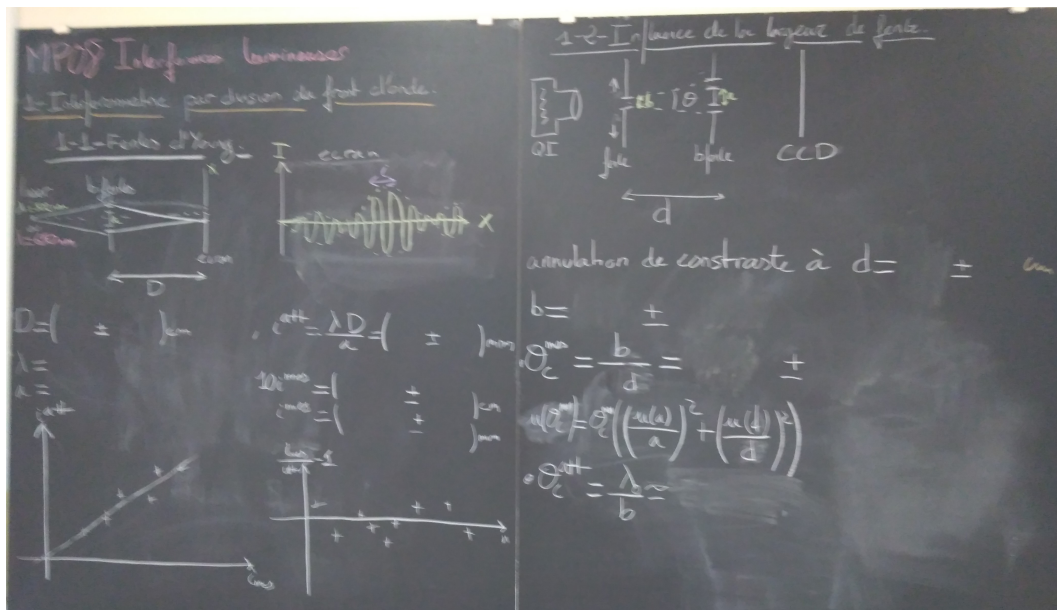 MP08 Interférences lumineuses
1-Interféromètre par division du front d'onde.
1-1-Fentes d'Young.
laser
bifente
a
x
écran
D
I
écran
i
x
D=( ± )cm
λ=
a=
i^att = λD/a = ( ± )mm
10i^mes = ( ± )cm
i^mes = ( ± )mm
i^att
i^mes
-1
a
1-2-Influence de la largeur de fente.
QI
fente
b
θ
a
bifente
CCD
d
annulation de constraste à d= ± cm
b= ±
θc^mes = b/d = ±
u(θc^mes) = θc^m((u(a)/a)^2+(u(d)/d)^2)
θc^att = λ0/b =